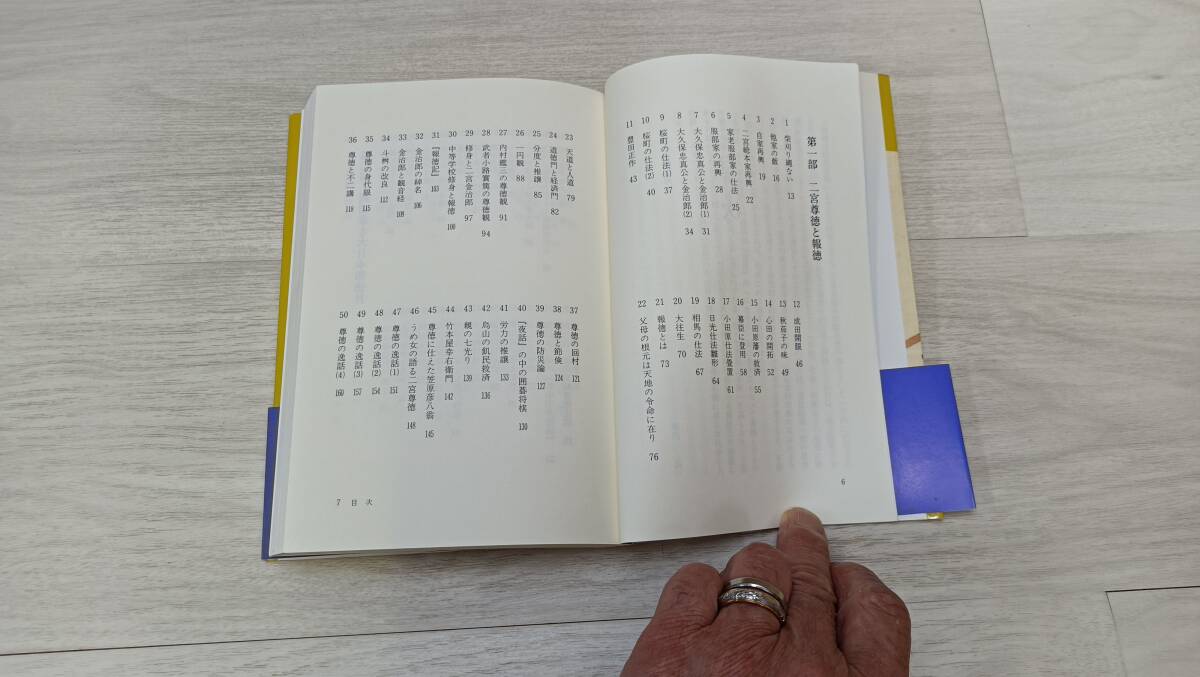 第一部 二宮尊徳と報徳
1 柴刈り縄ない 13
2 他家の飯 16
3 自家再興 19
4 二宮総本家再興 22
5 家老服部家の仕法 25
6 服部家の再興 28
7 大久保忠真公と金治郎(1) 31
8 大久保忠真公と金治郎(2) 34
9 桜町の仕法(1) 37
10 桜町の仕法(2) 40
11 豊田正作 43
12 成田開眼 46
13 秋茄子の味 49
14 心田の開拓 52
15 小田原藩の救済 55
16 幕臣に登用 58
17 小田原仕法畳置 61
18 日光仕法雛形 64
19 相馬の仕法 67
20 大往生 70
21 報徳とは 73
22 父母の根元は天地の令命に在り 76
6
23 天道と人道 79
24 道徳門と経済門 82
25 分度と推譲 85
26 一円観 88
27 内村鑑三の尊徳観 91
28 武者小路実篤の尊徳観 94
29 修身と二宮金治郎 97
30 中等学校修身と報徳 100
31 『報徳記』 103
32 金治郎の綽名 106
33 金治郎と観音経 109
34 斗桝の改良 112
35 尊徳の身代限 115
36 尊徳と不二講 118
37 尊徳の回村 121
38 尊徳と節倹 124
39 尊徳の防災論 127
40 『夜話』の中の囲碁将棋 130
41 労力の推譲 133
42 烏山の飢民救済 136
43 親の七光り 139
44 竹本屋幸右衛門 142
45 尊徳に仕えた笠原彦八翁 145
46 うめ女の語る二宮尊徳 148
47 尊徳の逸話(1) 151
48 尊徳の逸話(2) 154
49 尊徳の逸話(3) 157
50 尊徳の逸話(4) 160
7 目次